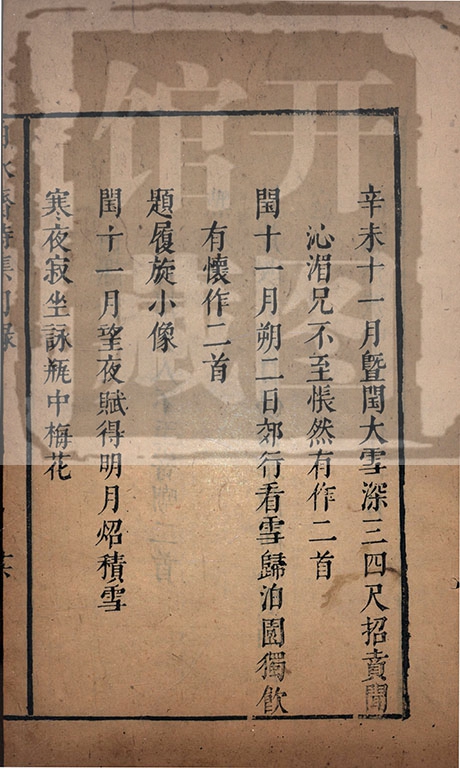 辛未十一月暨閏大雪深三四尺招賁聞
沁湄兄不至悵然有作二首
閏十一月朔二日郊行看雪歸泊園獨飲
有懷作二首
題履旋小像
閏十一月望夜賦得明月炤積雪
寒夜寂坐詠瓶中梅花
開图
馆藏